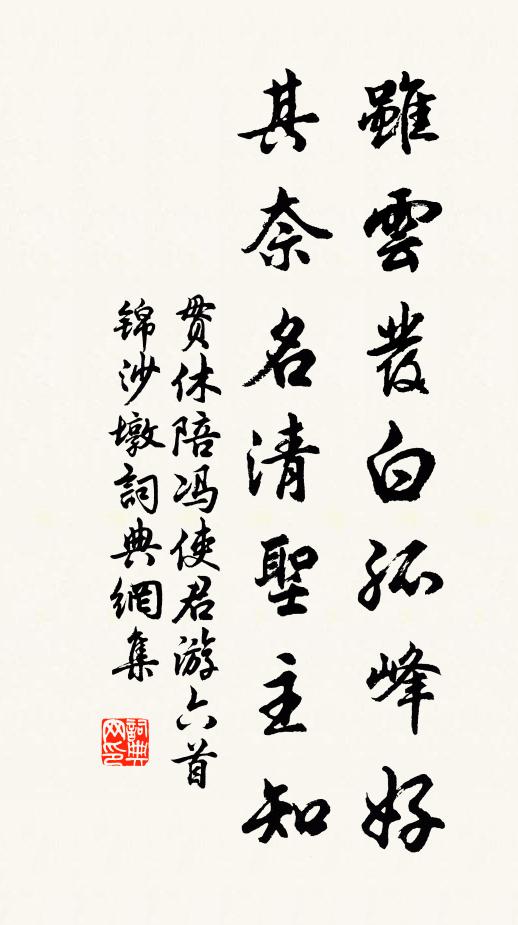 雖雲發白孤峰好
其奈名清聖主知
貫休陪冯使君游六首
锦沙墩詞典網集
詞典网印